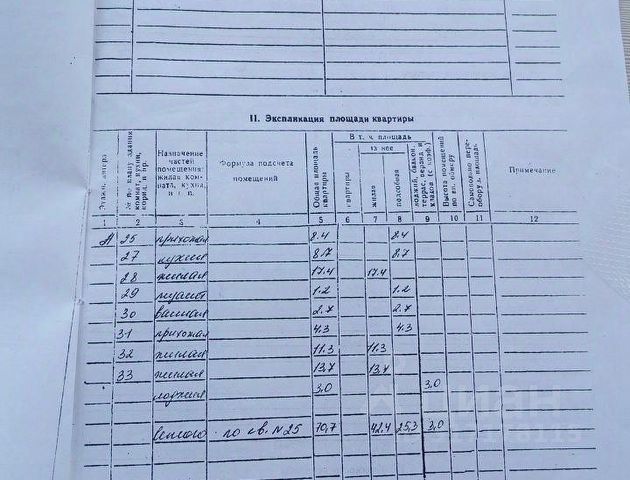 II. Экспликация площади квартиры
Этажи, литера
комнат, кухни,
Назначение
частей
помещения:
жилая ком-
ната, кухня,
и т. п.
Формула подсчета
помещений
Общая площадь
квартиры
В т. ч. площадь
из нее
квартиры
жилая
подсобная
лоджий, балкон.
террас, веранд и
кладов (с коэф.)
Высота помещений
по вн. обмеру
Самовольно пере-
оборуд. площадь
Примечание
1 2 3 4 5 6 7 8 9 10 11 12
25 прихожая 8.4 8.4
27 кухня 8.7 8.7
28 жилая 17.4 17.4
29 туалет 1.2 1.2
30 ванная 2.7 2.7
31 прихожая 4.3 4.3
32 жилая 11.3 11.3
33 жилая 13.7 13.7
лоджия 3,0 3,0
Всего по кв. N 25 70,7 42.4 25,3 3,0
ЦИАН